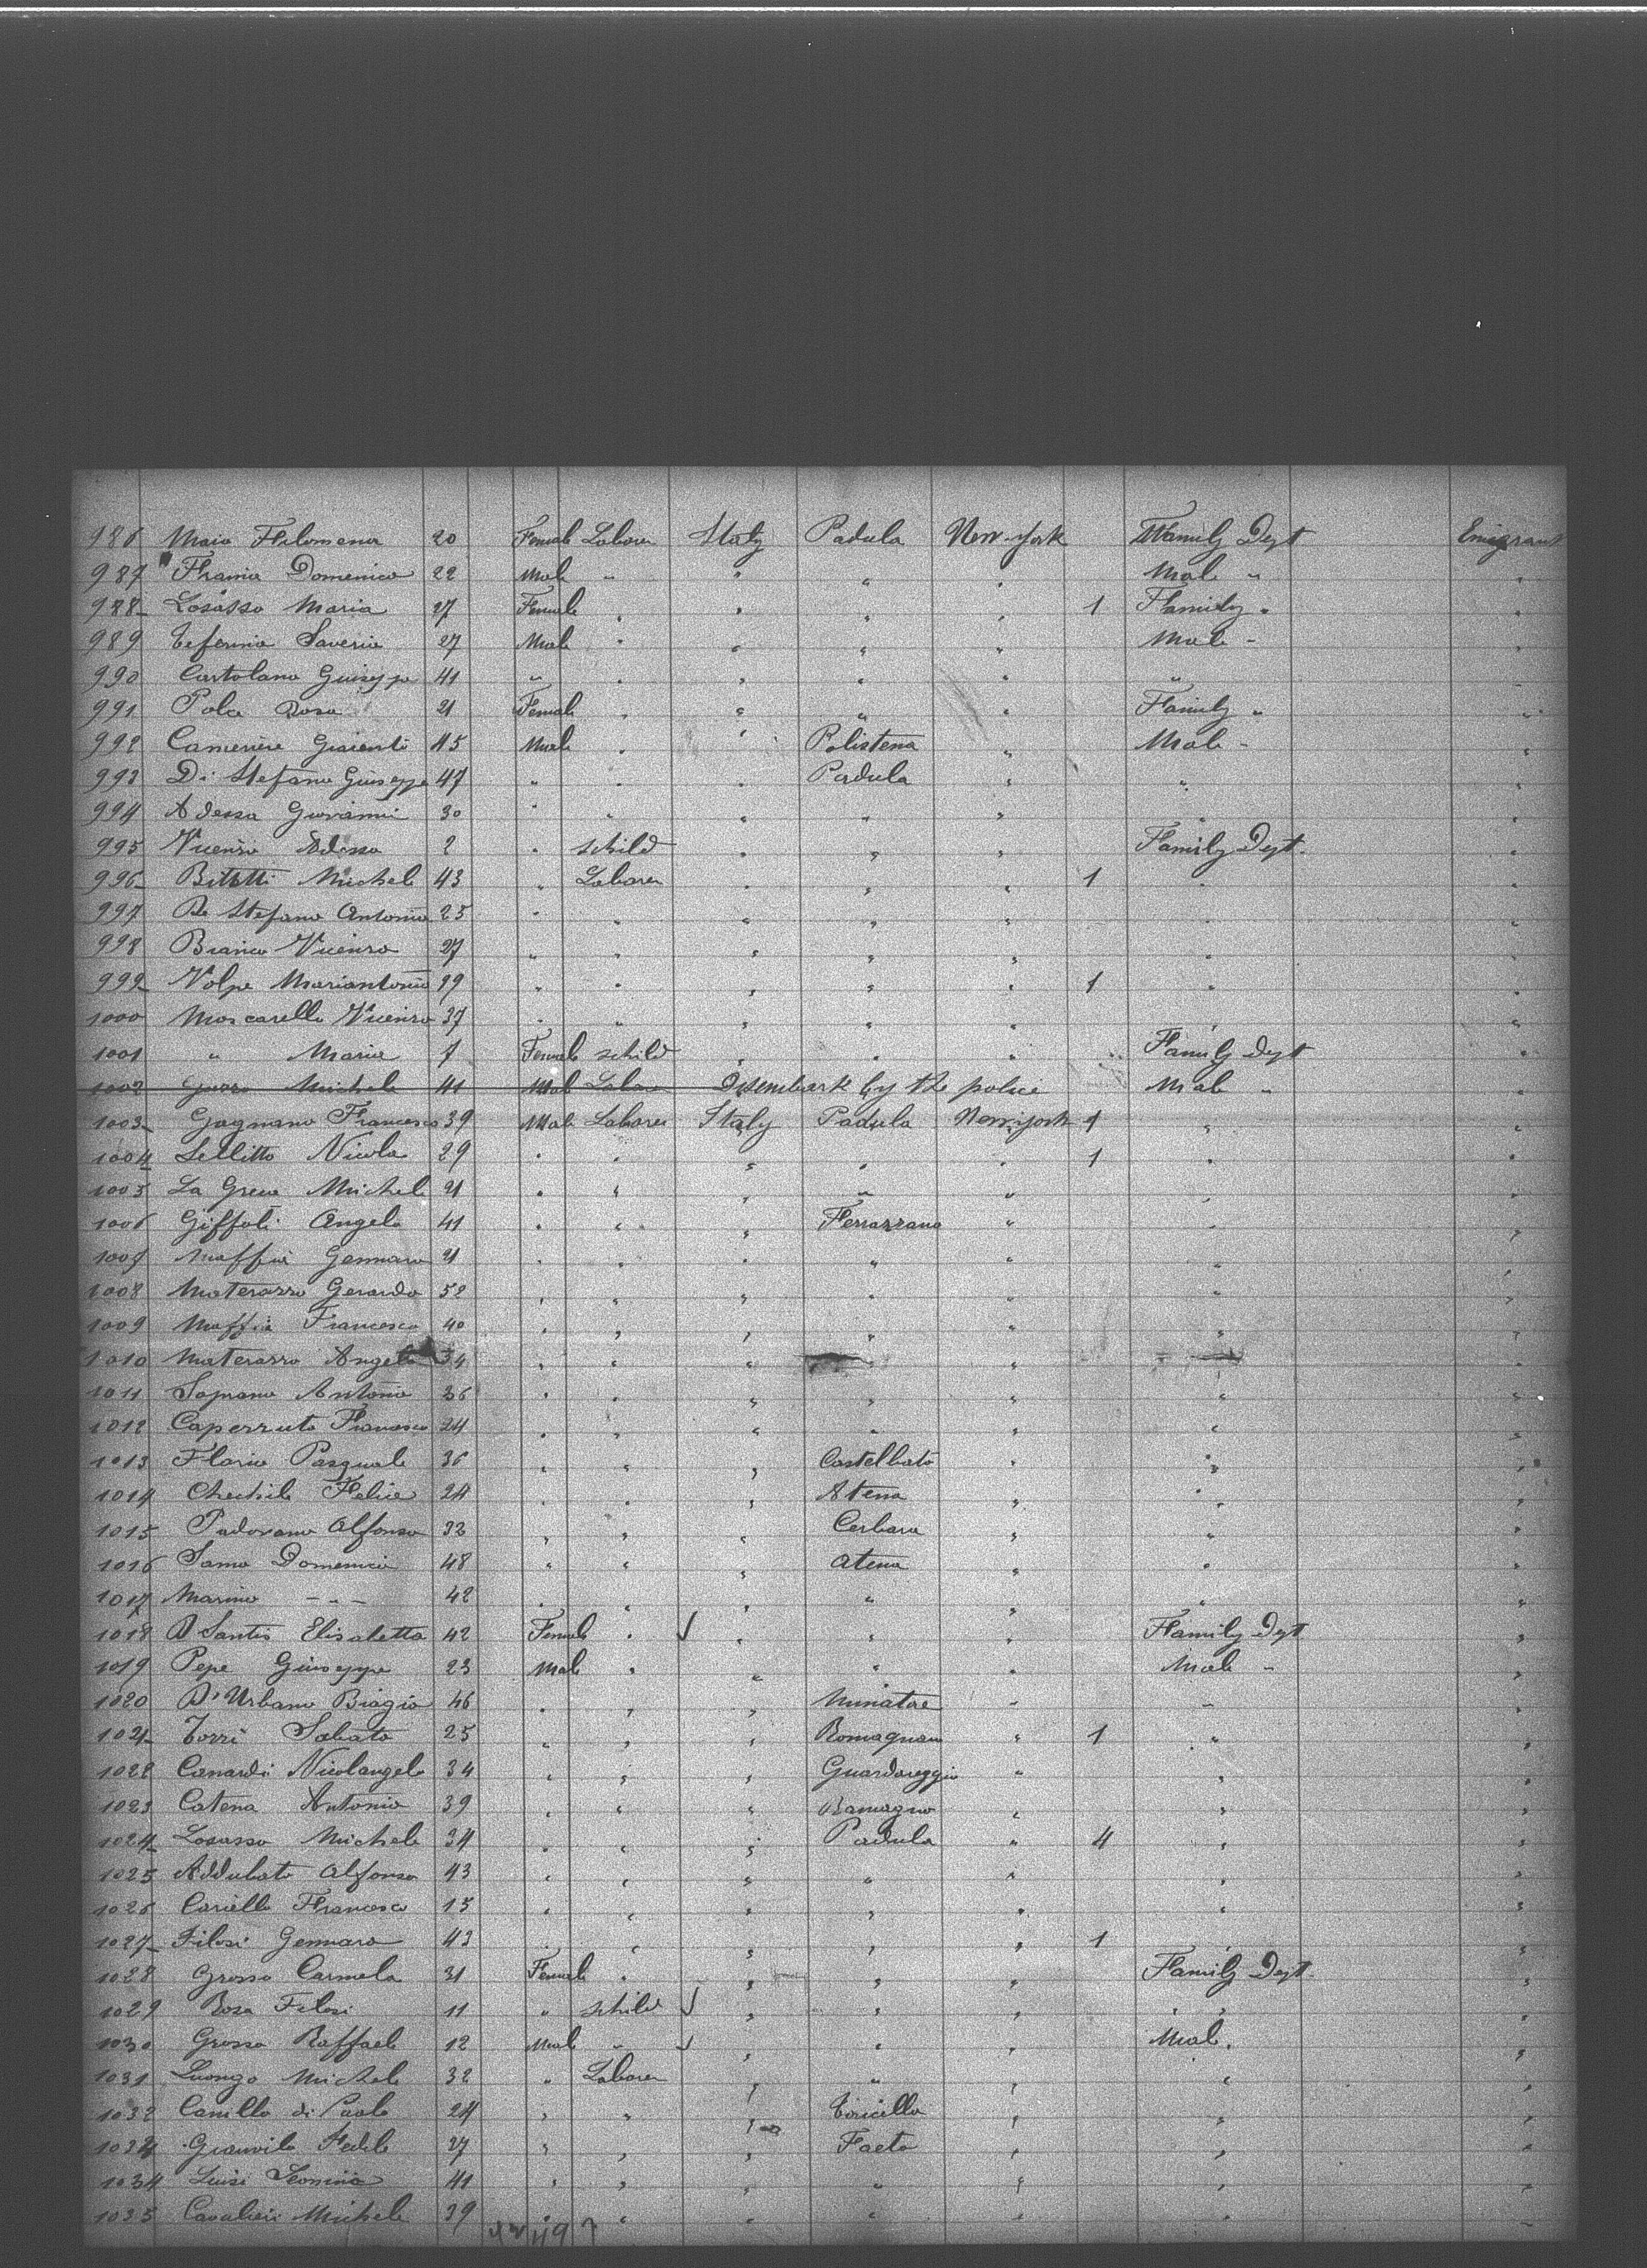 986 Maio Filomena 20 Female Laborer Italy Padula New-York Family Dept Emigrant
987 Frania Domenico 22 Male " " " " Male " "
988 Losasso Maria 27 Female " " " " 1 Family " "
989 Saverio 27 Male " " " " Male " "
990 Cartolano Giuseppe 41 " " " " " " "
991 Pola Rosa 21 Female " " " " Family " "
992 Cameriere 45 Male " " Polistena " Male " "
993 Di Stefano Giuseppe 47 " " " Padula " " "
994 Adessa Giovanni 30 " " " " " " "
995 Vicenzo Adessa 2 " schild " " " Family Dept. "
996 Bitetti Michele 43 " Laborer " " " 1 " "
997 De Stefano Antonio 25 " " " " " " "
998 Branco Vicenzo 27 " " " " " " "
999 Volpe Mariantonio 29 " " " " " 1 " "
1000 Moscarello Vicenzo 37 " " " " " " "
1001 " Maria 7 Female schild " " " Family Dept "
1002 Michele 41 Male Laborer Disembark by the police Male "
1003 Gagnano Francesco 39 Male Laborer Italy Padula New-york 1 " "
1004 Sellitto Nicola 29 " " " " " 1 " "
1005 La Greca Michele 21 " " " " " " "
1006 Giffoli Angelo 41 " " " Ferrazzano " " "
1007 Maffia Gennaro 21 " " " " " " "
1008 Materazzo Gerardo 52 " " " " " " "
1009 Maffia Francesco 40 " " " " " " "
1010 Materazzo Angelo 34 " " " " " " "
1011 Soprano Antonio 36 " " " " " " "
1012 Caperruto Francesco 24 " " " " " " "
1013 Florio Pasquale 36 " " " Castelbato " " "
1014 Chechile Felice 24 " " " Atena " " "
1015 Padovano Alfonso 32 " " " Cerbara " " "
1016 Samo Domenico 48 " " " Atena " " "
1017 Marino - - - 42 " " " " " " "
1018 D Santis Elisabetta 42 Female " " " " Family Dept "
1019 Pepe Giuseppe 23 Male " " " " Male " "
1020 D'Urbano Biagio 46 " " " " " "
1021 Torri Sabato 25 " " " Romagnano " 1 " "
1022 Canardi Nicolangelo 34 " " " Guardareggio " " "
1023 Catena Antonio 39 " " " Ramagno " " "
1024 Losasso Michele 34 " " " Padula " 4 " "
1025 Addubato Alfonso 43 " " " " " " "
1026 Cariello Francesco 15 " " " " " " "
1027 Filosi Gennaro 43 " " " " " 1 " "
1028 Grosso Carmela 31 Female " " " " Family Dept. "
1029 Rosa Filosi 11 " schild " " " " " "
1030 Grosso Raffaele 12 Male " " " " Male " "
1031 Luongo Michele 32 " Laborer " " " " "
1032 Camillo di Paolo 24 " " " Toricella " " "
1033 Fedele 27 " " " Faeto " " "
1034 Luisi Leonina 41 " " " " " " "
1035 Cavalieri Michele 39 " " " " " " "